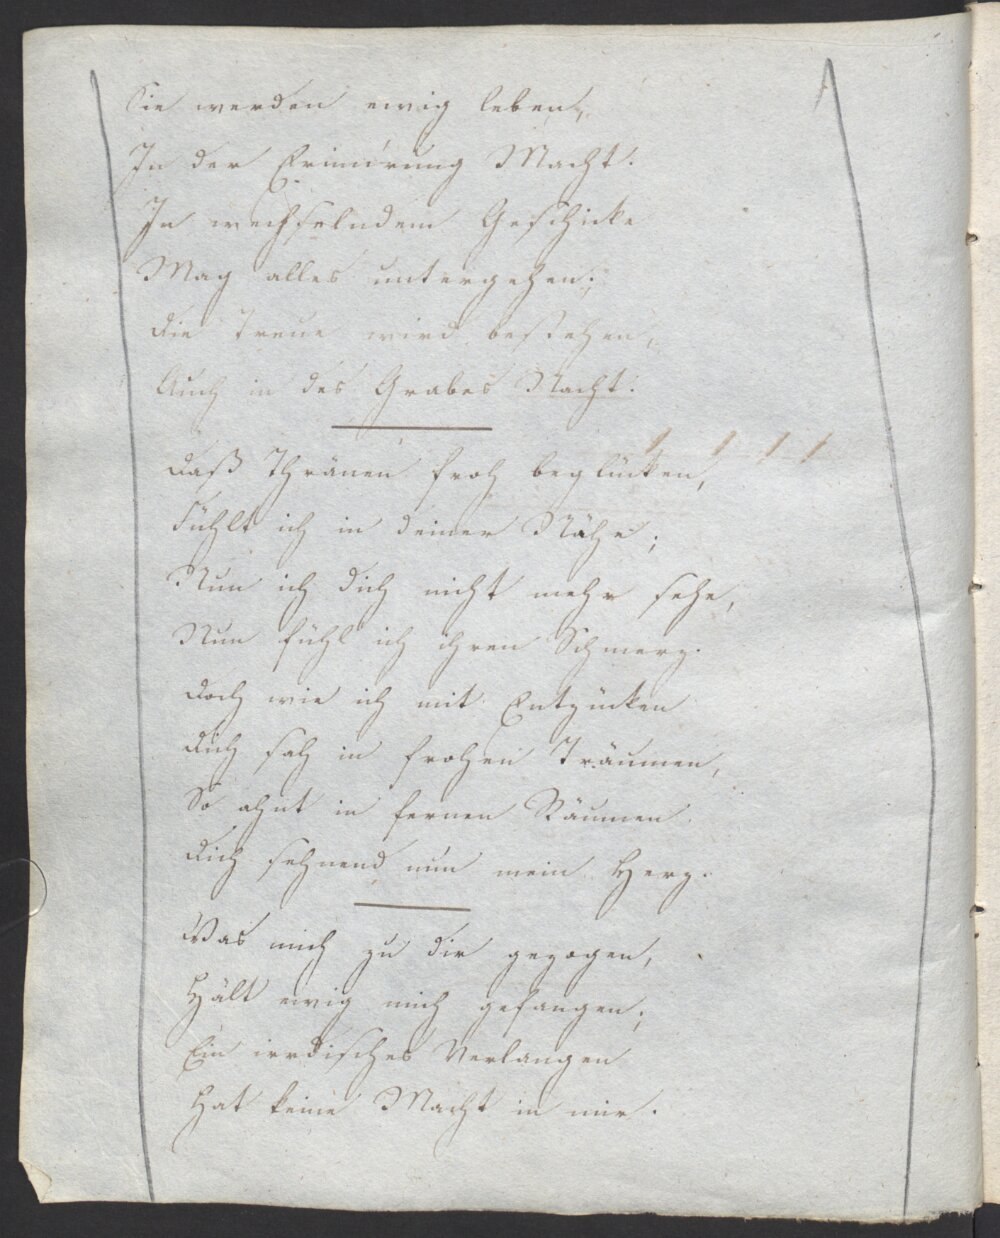 Sie werden ewig leben,
In der Erinnrung Macht.
In wechselndem Geschicke
Mag alles untergehen;
Die Treue wird bestehen,
Auch in des Grabes Nacht.
Daß Thränen froh beglücken,
Fühlt ich in deiner Nähe;
Nun ich dich nicht mehr sehe,
Nun fühl ich ihren Schmerz.
Doch wie ich mit Entzücken
Dich sah in frohen Träumen,
So ahnt in fernen Räumen
Dich sehnend nun mein Herz.
Was mich zu dir gezogen,
Hält ewig mich gefangen;
Ein irrdisches Verlangen
Hat keine Macht in mir.